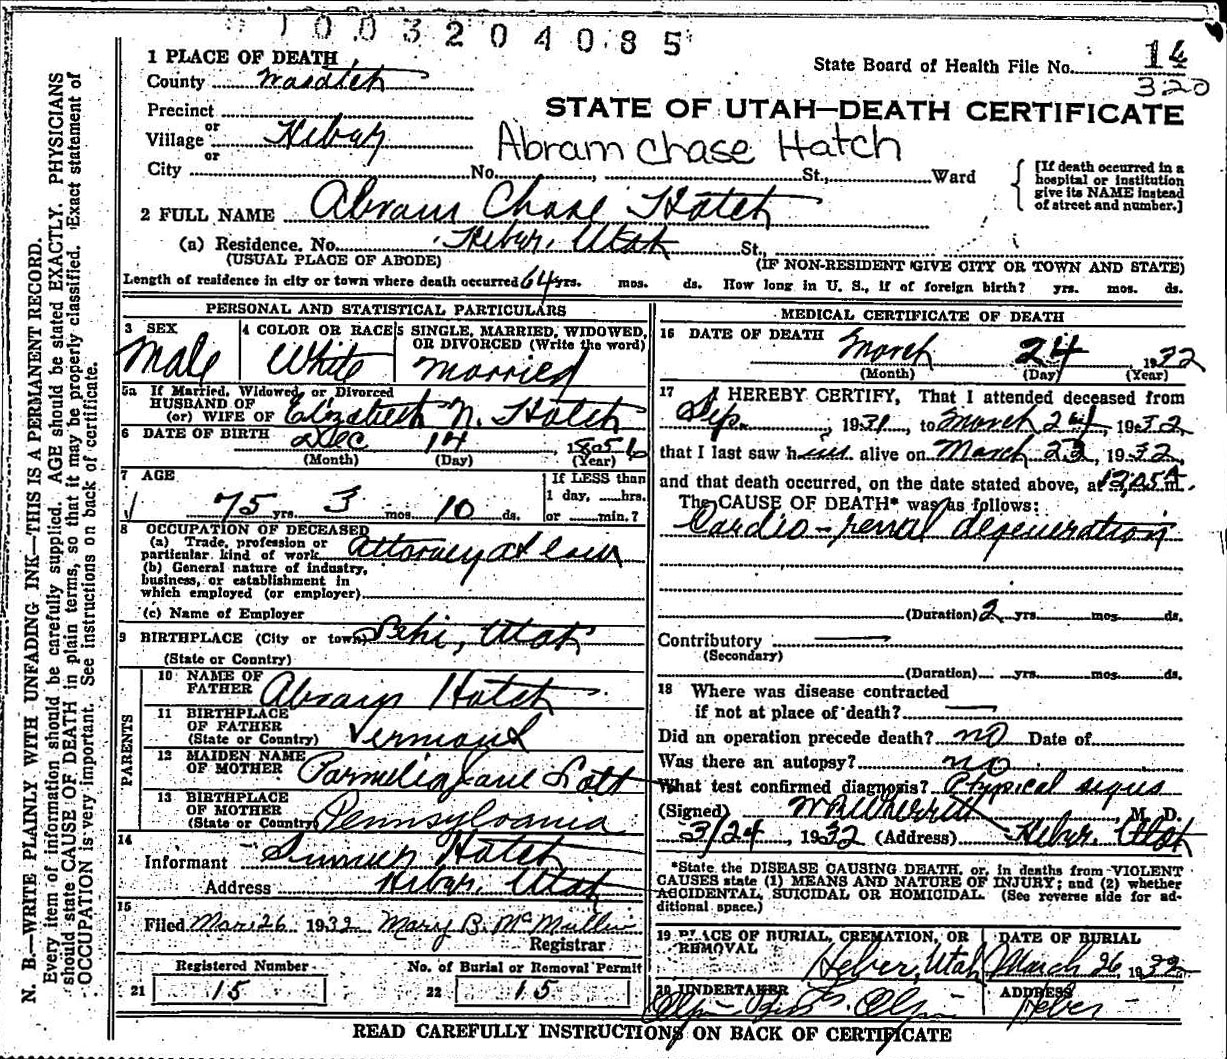 1003204085
1 PLACE OF DEATH
State Board of Health File No. 14
320
County Wasatch
STATE OF UTAH—DEATH CERTIFICATE
Precinct
or
Village Heber
Abram Chase Hatch
or
City No. , St., Ward
[If death occurred in a
hospital or institution
give its NAME instead
of street and number.]
2 FULL NAME Abram Chase Hatch
(a) Residence. No. Heber. Utah St.,
(USUAL PLACE OF ABODE) (IF NON-RESIDENT GIVE CITY OR TOWN AND STATE)
Length of residence in city or town where death occurred 64 yrs. mos. ds. How long in U. S., if of foreign birth? yrs. mos. ds.
PERSONAL AND STATISTICAL PARTICULARS
3 SEX
Male
4 COLOR OR RACE
White
5 SINGLE, MARRIED, WIDOWED,
OR DIVORCED (Write the word)
Married
5a If Married, Widowed, or Divorced
HUSBAND OF
(or) WIFE OF Elizabeth N. Hatch
6 DATE OF BIRTH Dec 14, 1856
(Month) (Day) (Year)
7 AGE
75 yrs. 3 mos. 10 ds.
If LESS than
1 day, hrs.
or min.?
8 OCCUPATION OF DECEASED
(a) Trade, profession or
particular kind of work Attorney at law
(b) General nature of industry,
business, or establishment in
which employed (or employer)
(c) Name of Employer
9 BIRTHPLACE (City or town) Lehi, Utah
(State or Country)
PARENTS
10 NAME OF
FATHER Abram Hatch
11 BIRTHPLACE
OF FATHER
(State or Country) Vermont
12 MAIDEN NAME
OF MOTHER Parmelia Jane Lott
13 BIRTHPLACE
OF MOTHER
(State or Country) Pennsylvania
14
Informant Hatch
Address Heber. Utah
15
Filed Mar 26 1932 Mary B. McMullin
Registrar
Registered Number
21 15
No. of Burial or Removal Permit
22 15
MEDICAL CERTIFICATE OF DEATH
16 DATE OF DEATH March 24 1932
(Month) (Day) (Year)
17 I HEREBY CERTIFY, That I attended deceased from
Sep. , 1931, to March 24, 1932
that I last saw him alive on March 23, 1932,
and that death occurred, on the date stated above, at 12,05 A. m.
The CAUSE OF DEATH* was as follows:
Cardio-renal degeneration
(Duration) 2 yrs. mos. ds.
Contributory
(Secondary)
(Duration) yrs. mos. ds.
18 Where was disease contracted
if not at place of death?
Did an operation precede death? no Date of
Was there an autopsy? no
What test confirmed diagnosis? Physical signs
(Signed) M. D.
3/24, 1932 (Address) Heber. Utah
*State the DISEASE CAUSING DEATH, or, in deaths from VIOLENT
CAUSES state (1) MEANS AND NATURE OF INJURY; and (2) whether
ACCIDENTAL, SUICIDAL OR HOMICIDAL. (See reverse side for ad-
ditional space.)
19 PLACE OF BURIAL, CREMATION, OR
REMOVAL
Heber, Utah
DATE OF BURIAL
March 26, 1932
20 UNDERTAKER
ADDRESS
Heber
READ CAREFULLY INSTRUCTIONS ON BACK OF CERTIFICATE
N. B.—WRITE PLAINLY WITH UNFADING INK—THIS IS A PERMANENT RECORD.
Every item of information should be carefully supplied. AGE should be stated EXACTLY. PHYSICIANS
should state CAUSE OF DEATH in plain terms, so that it may be properly classified. Exact statement of
OCCUPATION is very important. See instructions on back of certificate.